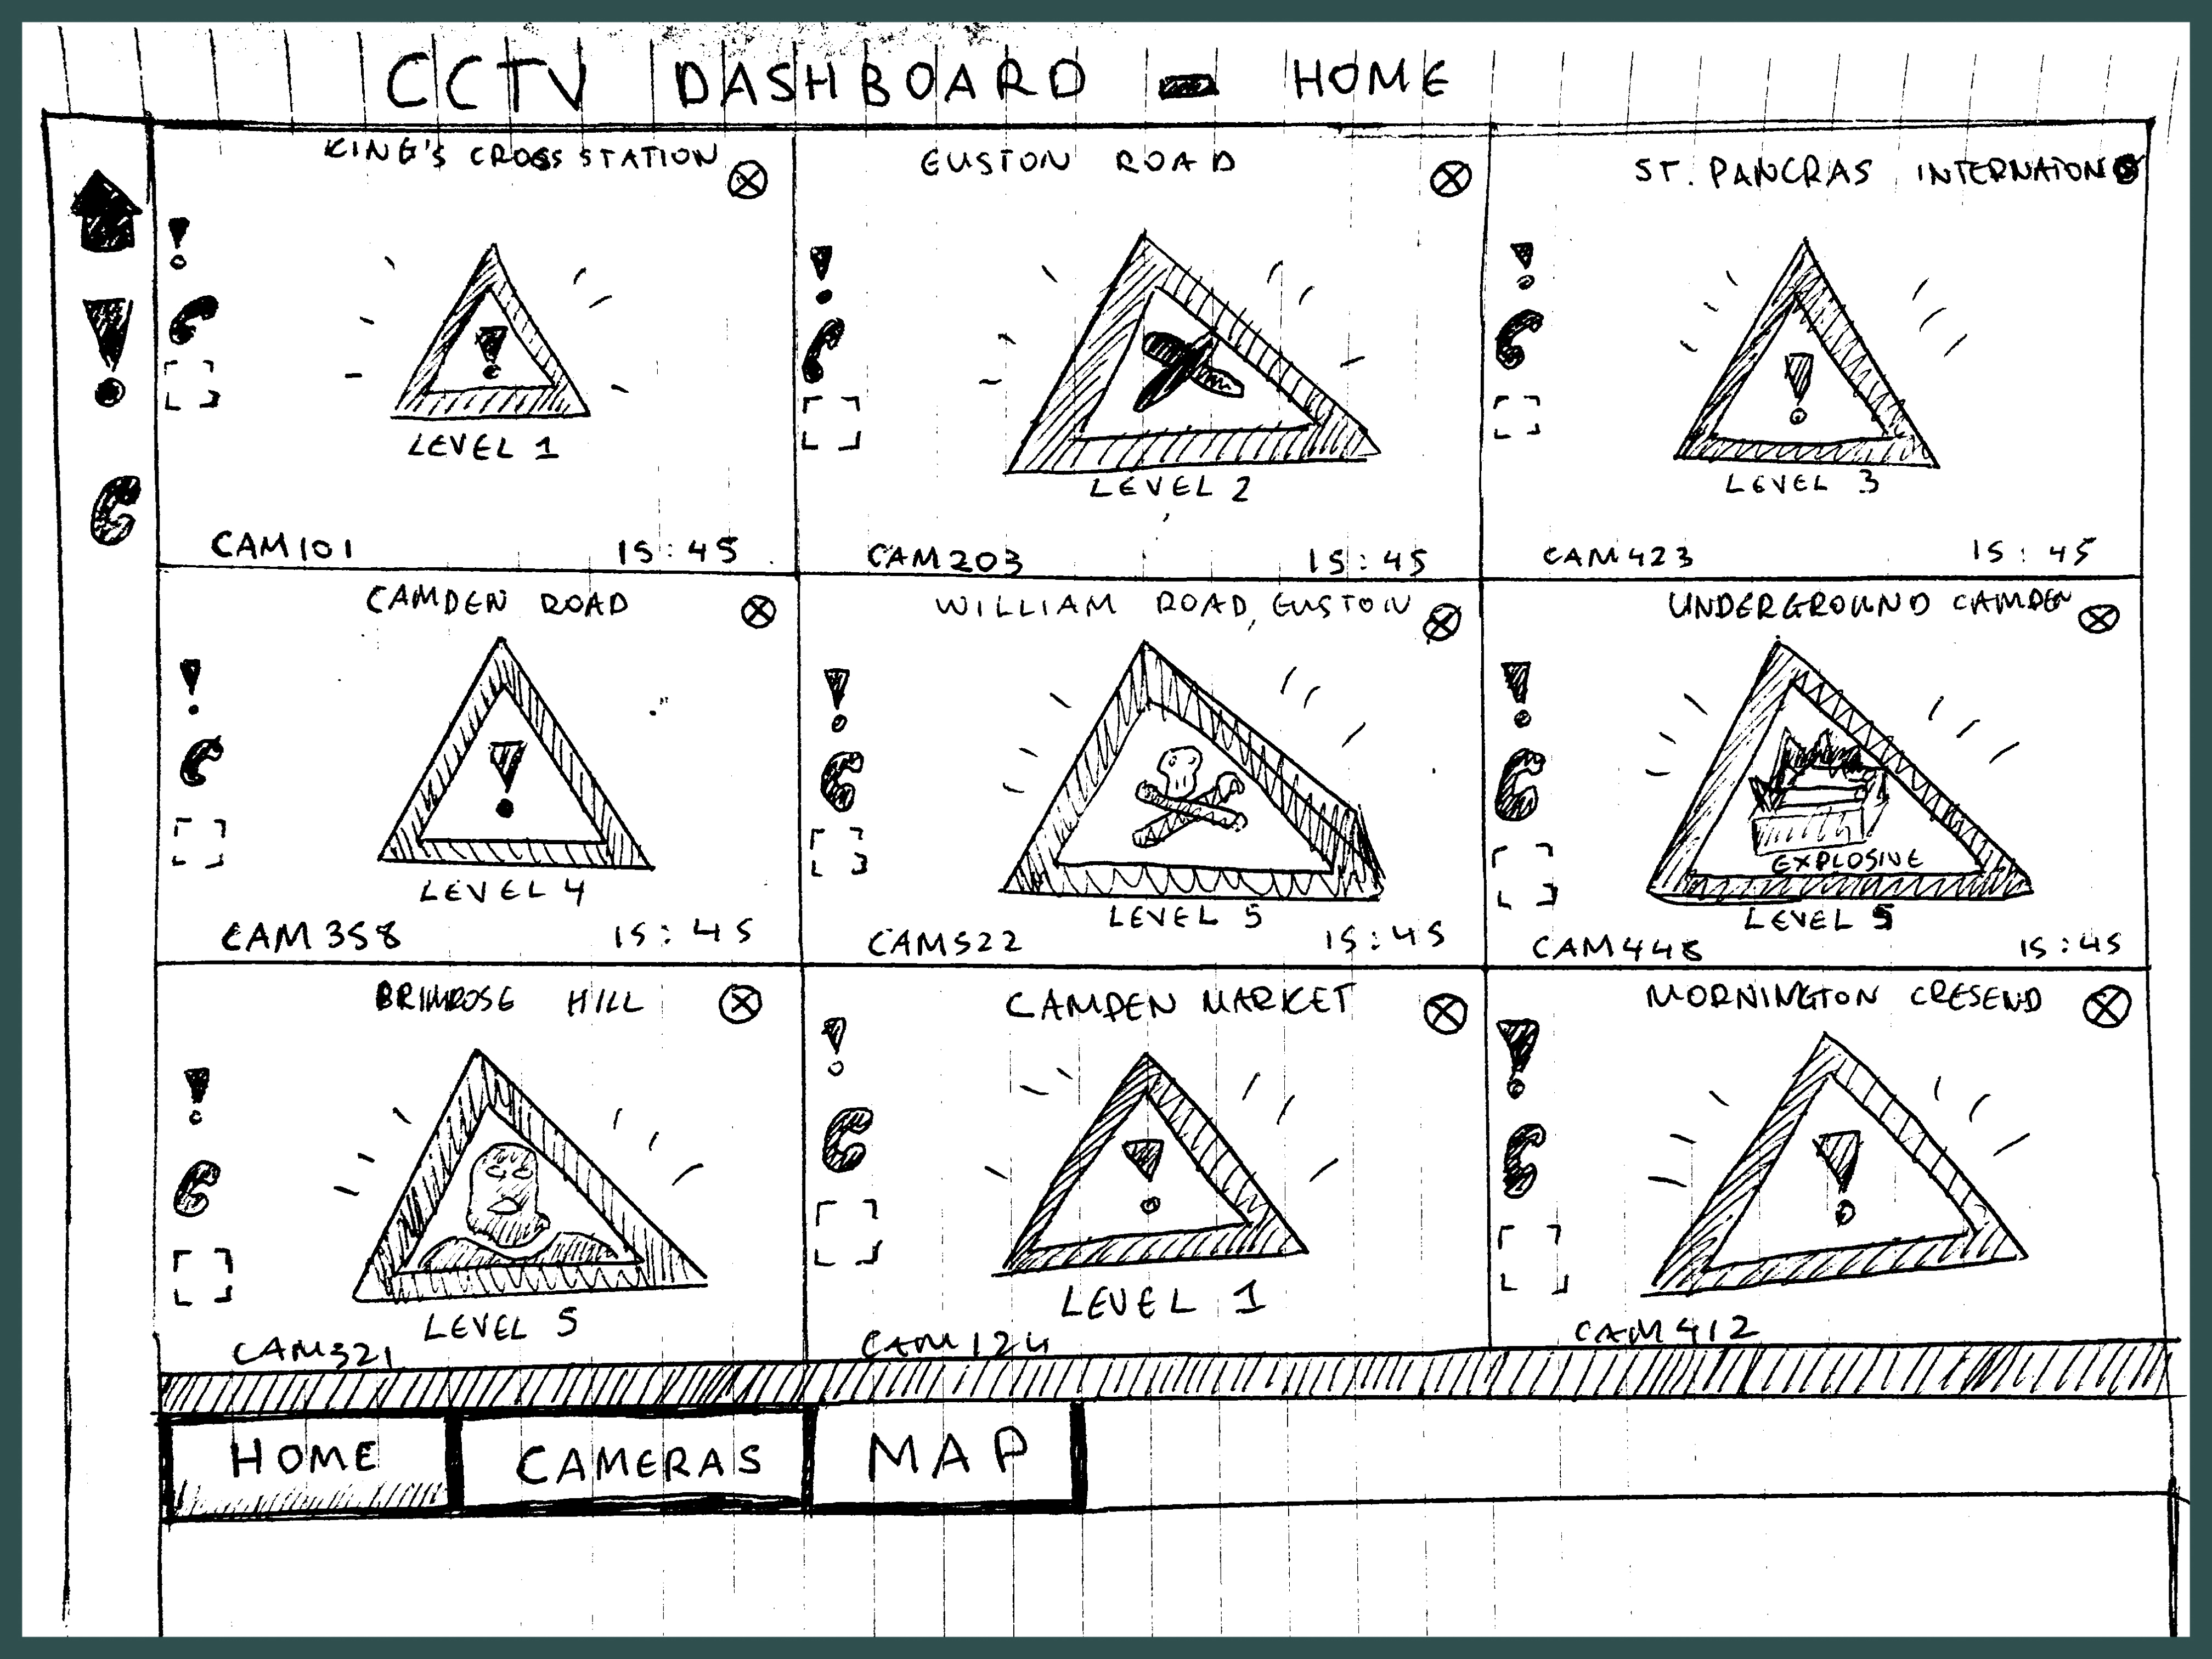 CCTV DASHBOARD - HOME
KING'S CROSS STATION
LEVEL 1
CAM101 15:45
EUSTON ROAD
LEVEL 2
CAM203 15:45
ST. PANCRAS INTERNATION
LEVEL 3
CAM423 15:45
CAMDEN ROAD
LEVEL 4
CAM358 15:45
WILLIAM ROAD, EUSTON
LEVEL 5
CAM522 15:45
UNDERGROUND CAMDEN
EXPLOSIVE
LEVEL 5
15:45
BRIMROSE HILL
LEVEL 5
CAM321
CAMDEN MARKET
LEVEL 1
CAM124
MORNINGTON CRESEND
CAM412
HOME CAMERAS MAP